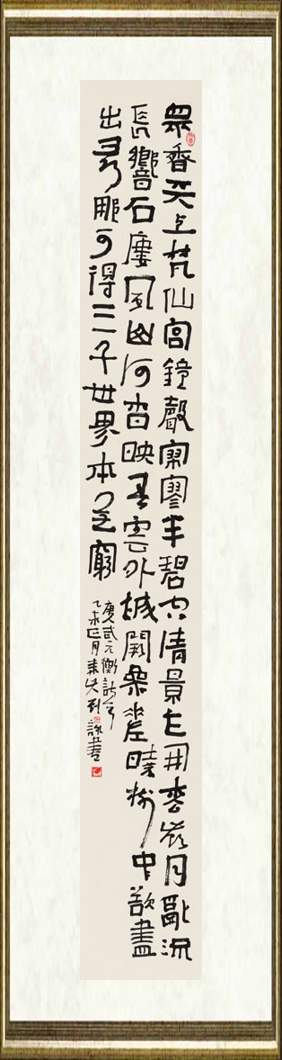 眾香天上梵仙宮鐘聲寂寥半碧空清景乍開松岑月亂流
長響石廔風山河杳映春雲外城闕參差曉樹中欲盡
出尋那可得三千世界本无窮
唐武元衡詩
乙未正月